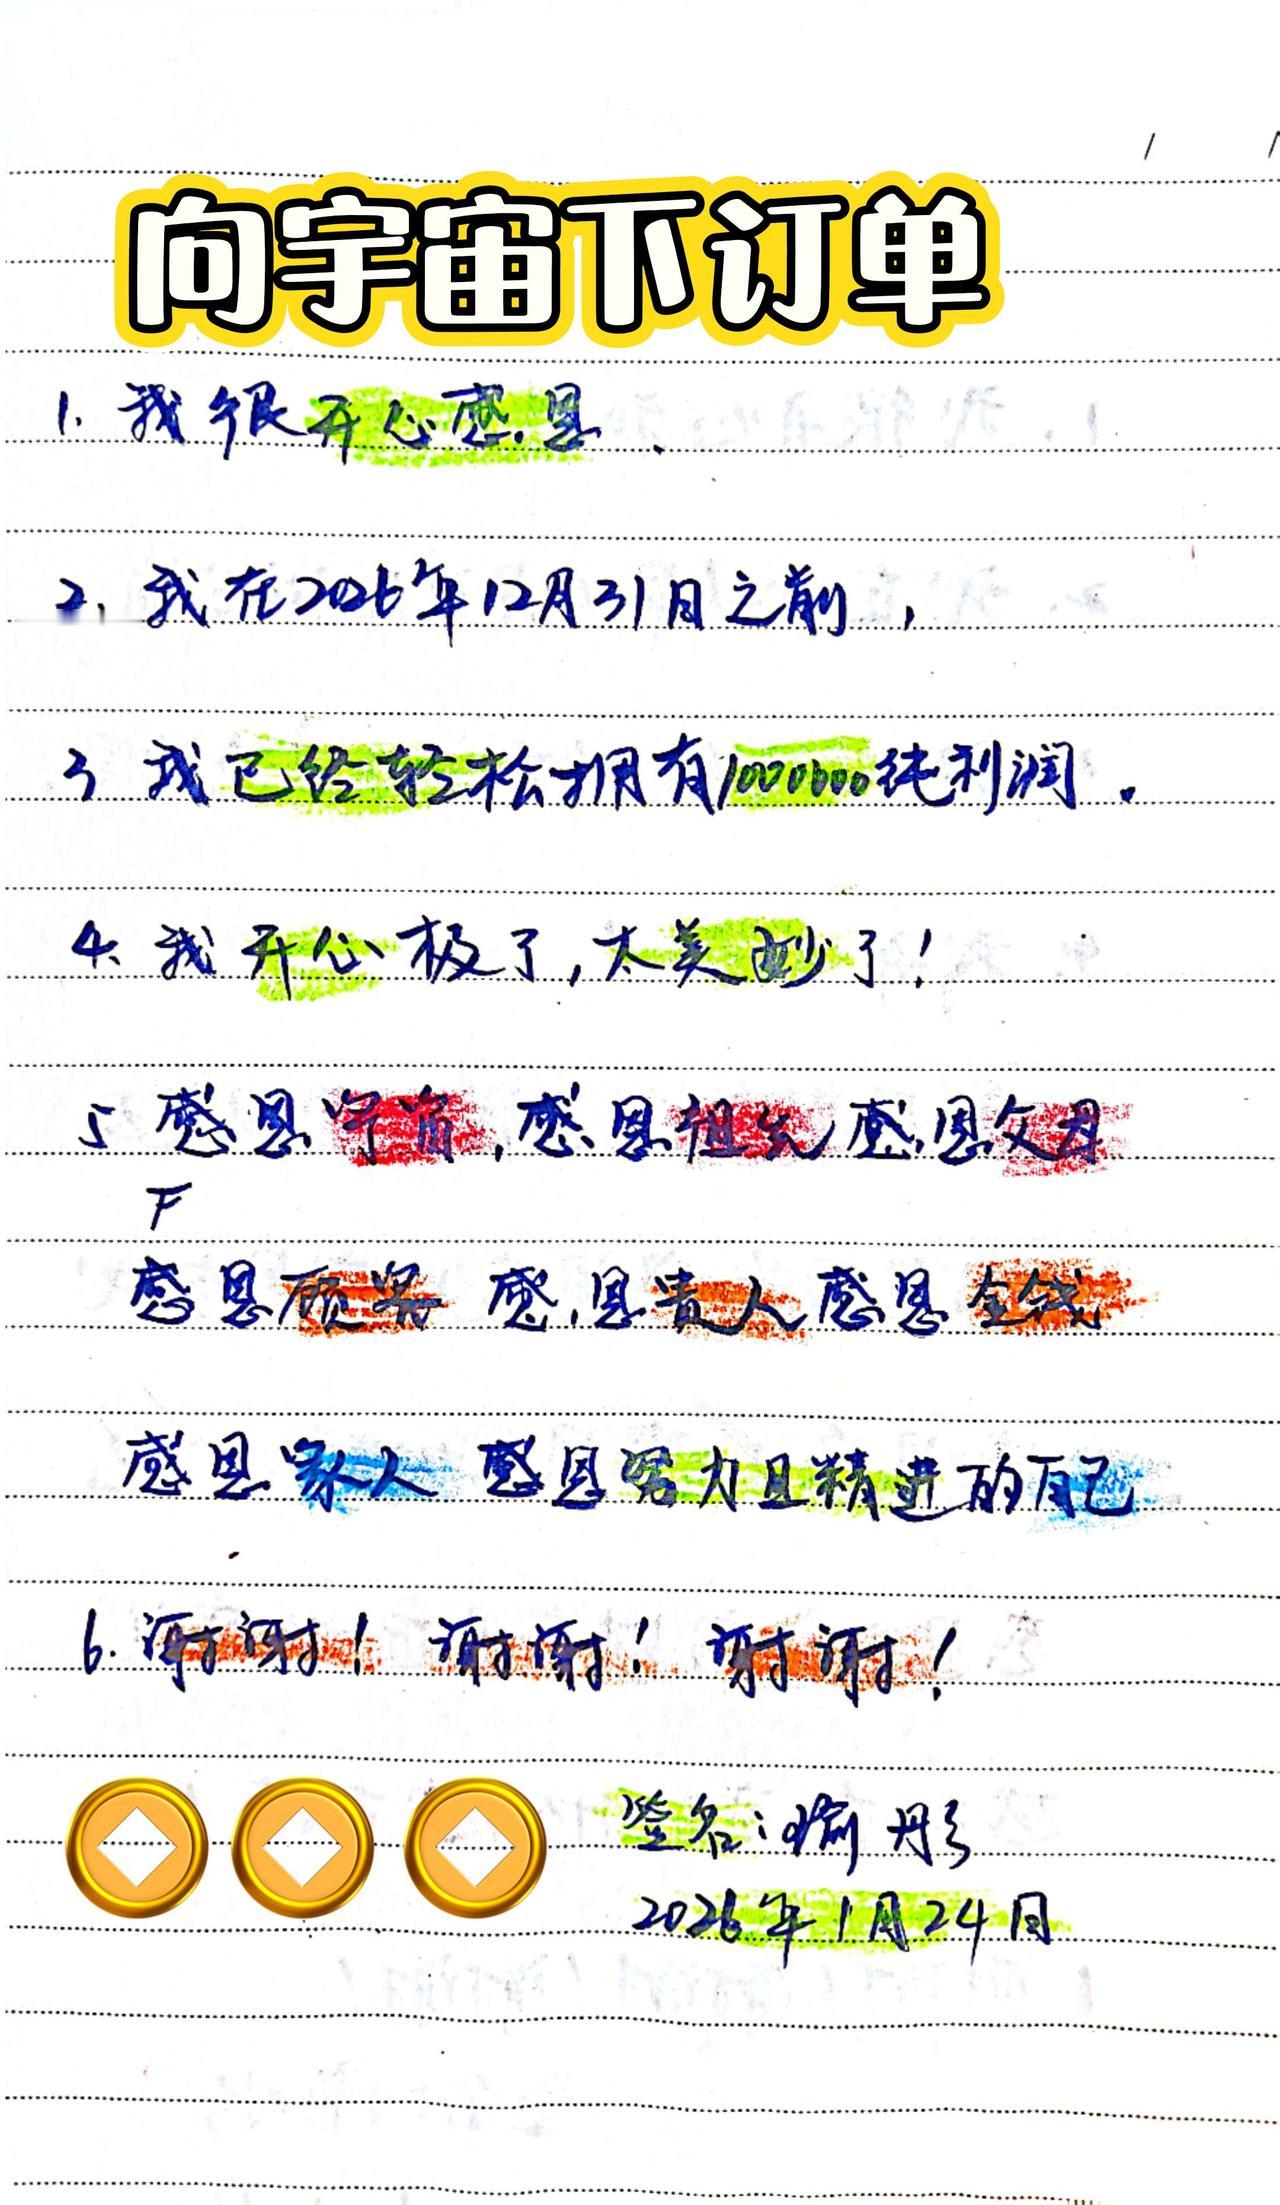 向宇宙下订单
1. 我很开心感恩.
2. 我在2026年12月31日之前,
3 我已经轻松拥有1000000纯利润.
4. 我开心极了,太美妙了!
5 感恩宇宙,感恩祖先 感恩父母
感恩顾客 感恩贵人 感恩金钱
感恩家人 感恩努力且精进的自己
6. 谢谢! 谢谢! 谢谢!
签名: 彤
2026年1月24日